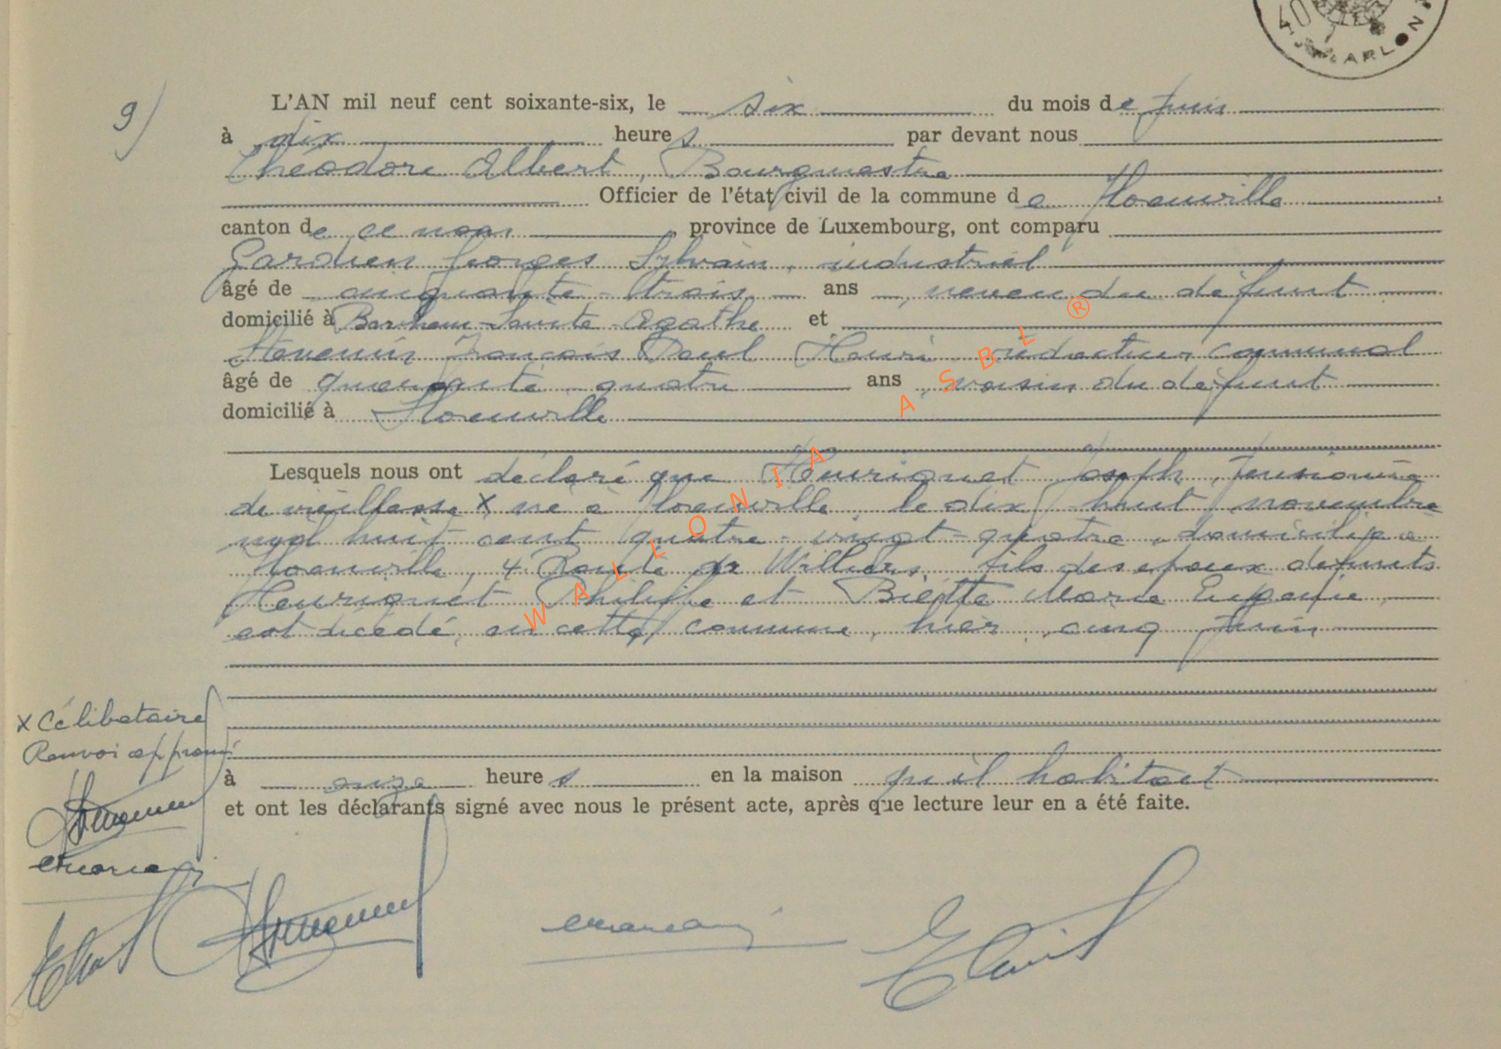 ARLON
9)
L'AN mil neuf cent soixante-six, le six du mois de juin
à dix heures par devant nous
Théodore Albert, Bourgmestre
Officier de l'état civil de la commune de Florenville
canton de ce nom, province de Luxembourg, ont comparu
Georges Sylvain, industriel
âgé de cinquante-trois ans, neveu du défunt
domicilié à Berchem-Sainte-Agathe et
François Paul Henri rédacteur communal
âgé de quarante quatre ans, voisin du défunt
domicilié à Florenville
Lesquels nous ont déclaré que Henriquet Joseph, pensionné
de vieillesse X né à Florenville le dix huit novembre
mil huit cent quatre-vingt-quatre, domicilié à
Florenville, 4 Route de Williers, fils des époux défunts
Henriquet Philippe et Marie Eugénie,
est décédé, en cette commune, hier, cinq juin
X Célibataire
Renvoi approuvé
à onze heures en la maison qu'il habitait
et ont les déclarants signé avec nous le présent acte, après que lecture leur en a été faite.
WALLONIA ASBL ®